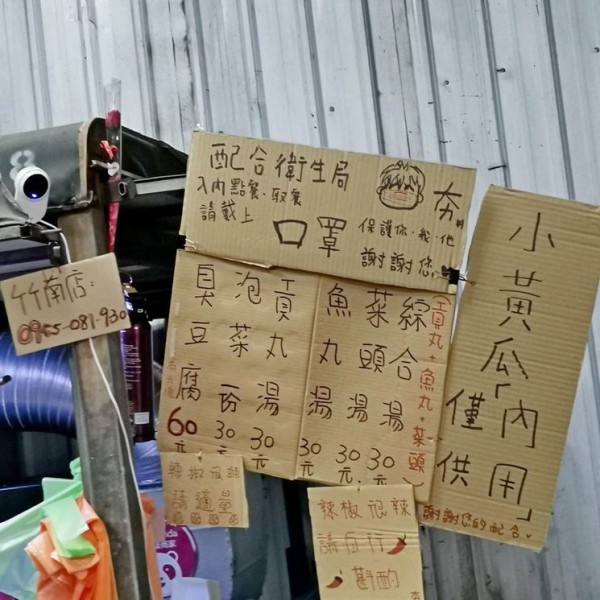 配合衛生局
入內點餐.取餐
請戴上
口罩
保護你.我.他
謝謝您
夯
竹南店:
0965-081-930
臭豆腐 60元
泡菜 一份 30元
貢丸湯 30元
魚丸湯 30元
菜頭湯 30元
綜合湯 30元
(貢丸+魚丸+菜頭)
小黃瓜「內用」
僅供
謝謝您的配合
辣椒
請適量
辣椒很辣
請自行
斟酌